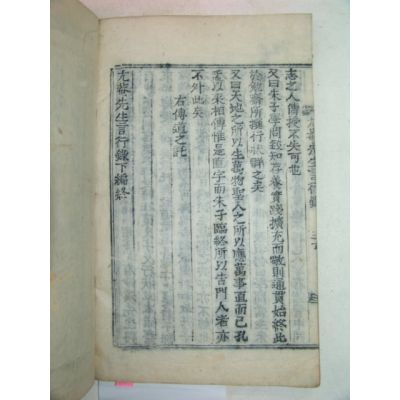 志之人傳授不失可也
又曰朱子學問致知存養實踐擴充而敬則通貫始終此
勉齋所撰行狀詳之矣
又曰天地之所以生萬物聖人之所以應萬事直而已孔
孟以來相傳惟是直字而朱子臨終所以告門人者亦
不外此矣
右傳道之託
尤菴先生言行錄下編終